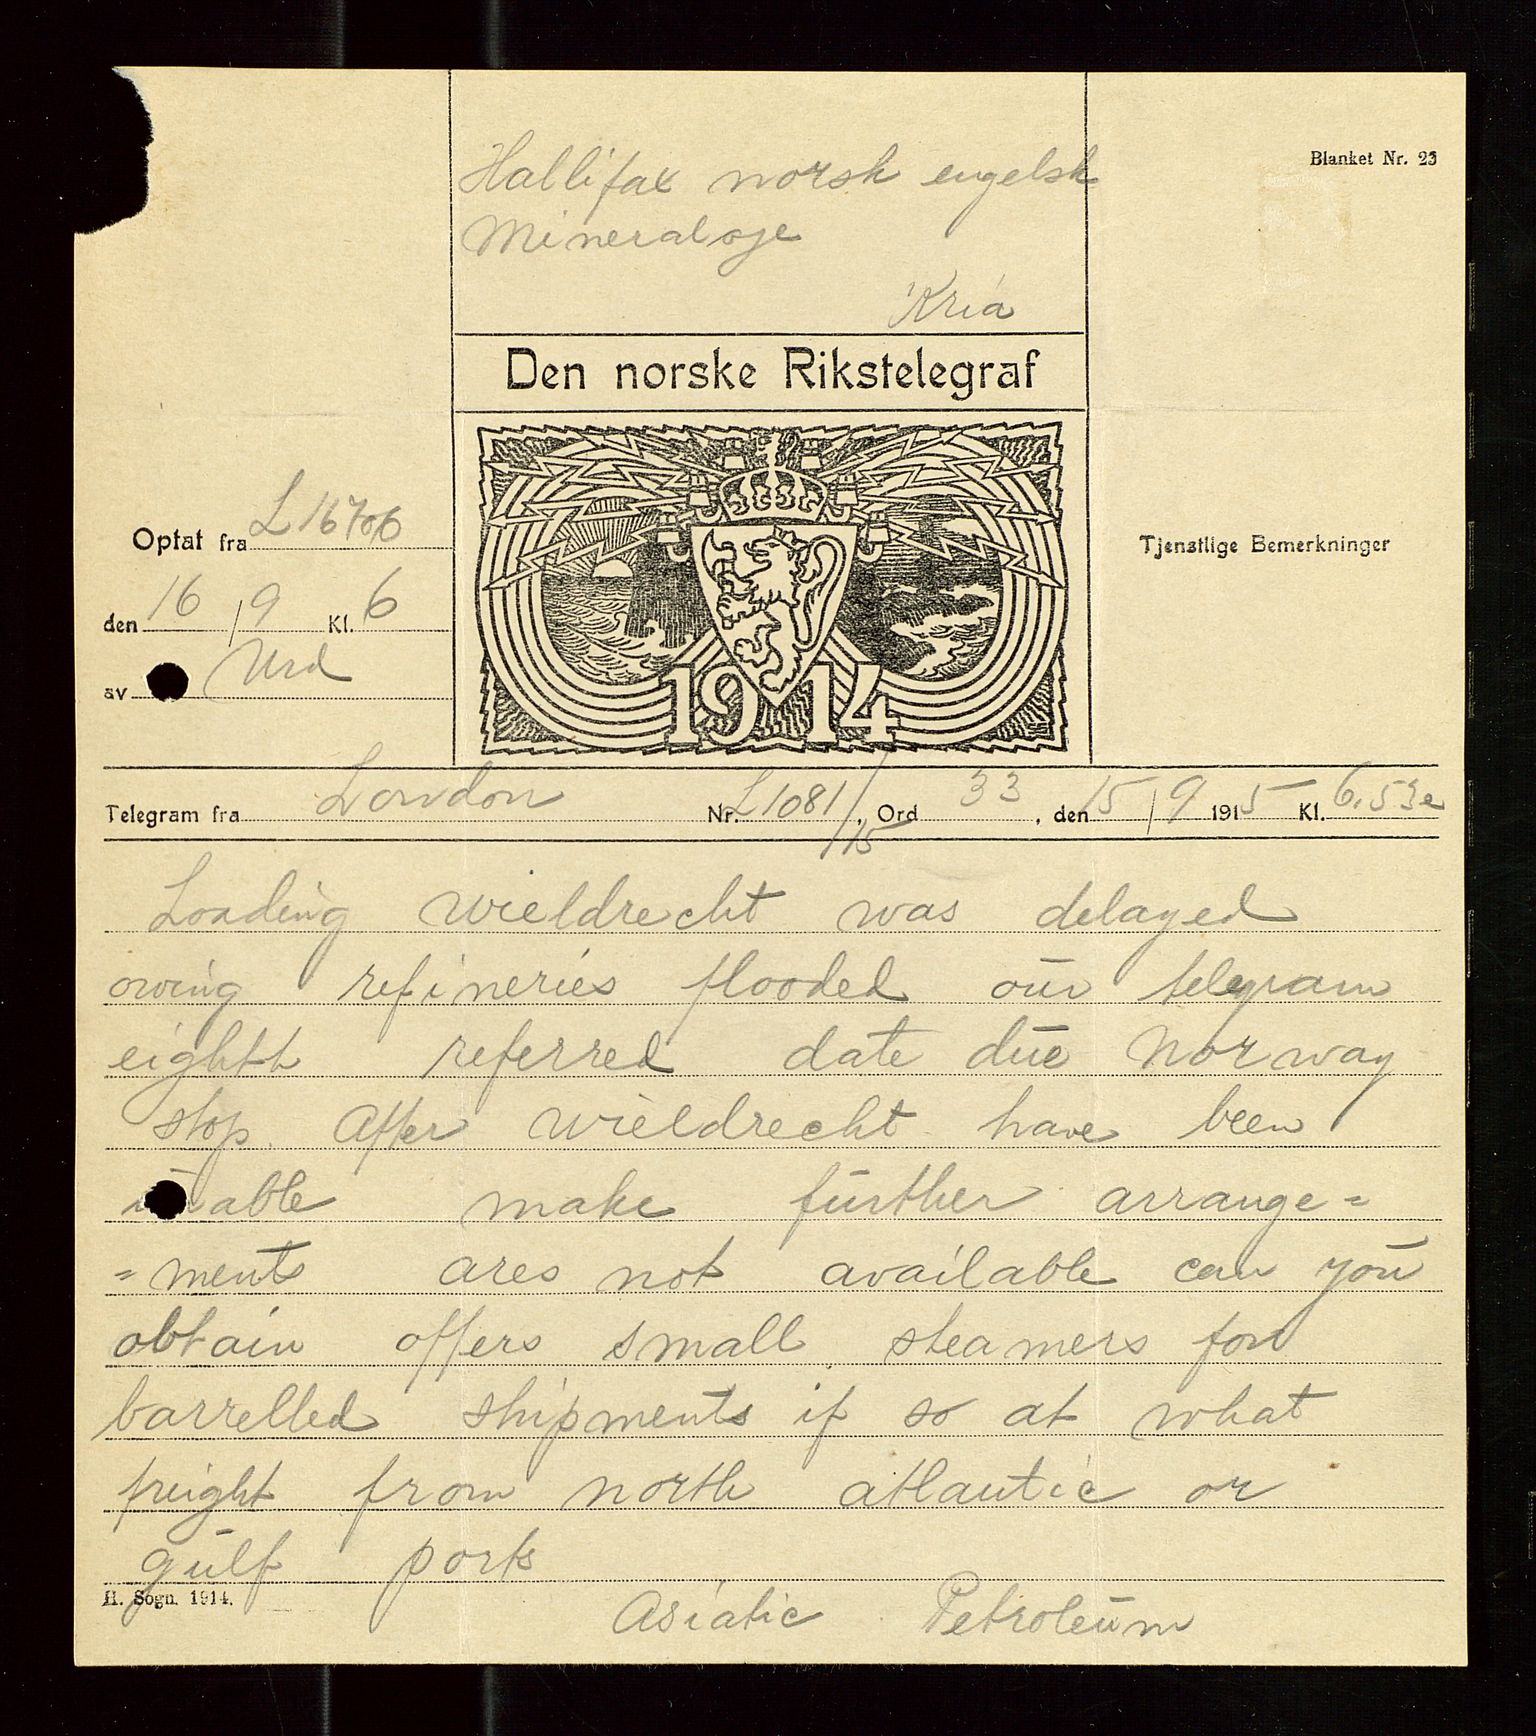 Hallifax norsk engelsk
Mineraloje
Kria
Blanket Nr. 23
Den norske Rikstelegraf
Optat fra L 16706
den 16/9 Kl. 6
av
Tjenstlige Bemerkninger
1914
Telegram fra London Nr. L 1081/15, Ord 33, den 15/9 1915 Kl. 6.53e
Loading wieldrecht was delayed
owing refineries flooded our telegram
eighth referred date due Norway
stop. After wieldrecht have been
unable make further arrange=
=ments ares not available can you
obtain offers small steamers for
barrelled shipments if so at what
freight from north atlantic or
gulf ports
H. Sogn. 1914.
Asiatic Petroleum